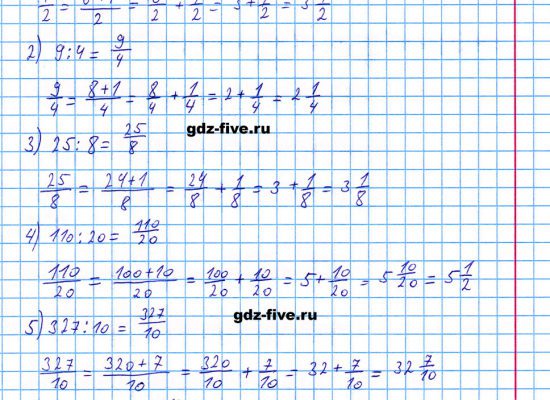 /2 = /2 = /2 + 1/2 = 3 + 1/2 = 3 1/2
2) 9 : 4 = 9/4
9/4 = 8+1/4 = 8/4 + 1/4 = 2 + 1/4 = 2 1/4
gdz-five.ru
3) 25 : 8 = 25/8
25/8 = 24+1/8 = 24/8 + 1/8 = 3 + 1/8 = 3 1/8
4) 110 : 20 = 110/20
110/20 = 100+10/20 = 100/20 + 10/20 = 5 + 10/20 = 5 10/20 = 5 1/2
gdz-five.ru
5) 327 : 10 = 327/10
327/10 = 320+7/10 = 320/10 + 7/10 = 32 + 7/10 = 32 7/10